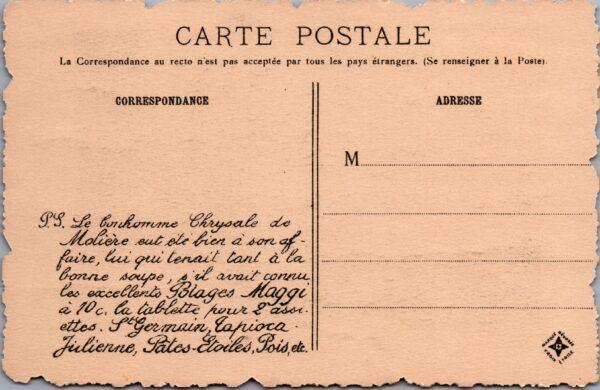 CARTE POSTALE
La Correspondance au recto n'est pas acceptée par tous les pays étrangers. (Se renseigner à la Poste).
CORRESPONDANCE
ADRESSE
M
P.S. Le bonhomme Chrysale de
Molière eut été bien à son af-
faire, lui qui tenait tant à la
bonne soupe, s'il avait connu
les excellents Potages Maggi
à 10c. la tablette pour 2 assi-
ettes. St Germain, Tapioca-
Julienne, Pâtes-Etoiles, Pois, etc.